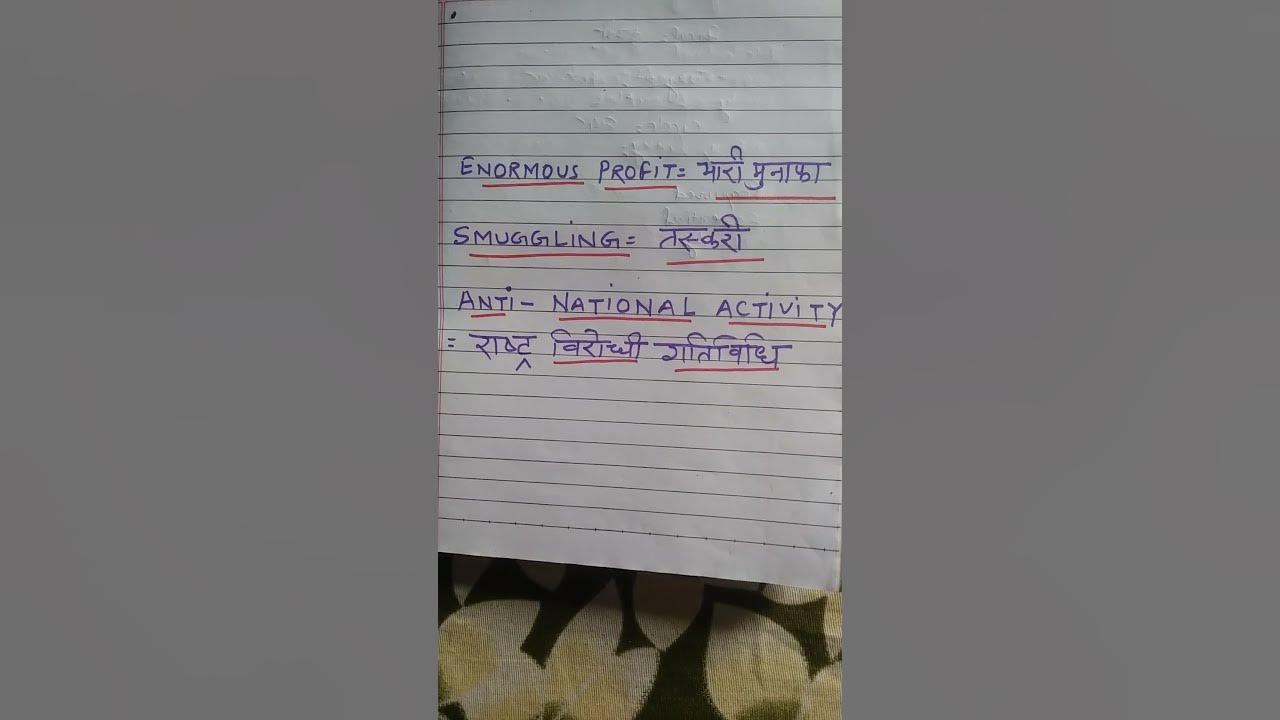 ENORMOUS PROFIT= भारी मुनाफा
SMUGGLING= तस्करी
ANTI- NATIONAL ACTIVITY
= राष्ट्र विरोधी गतिविधि